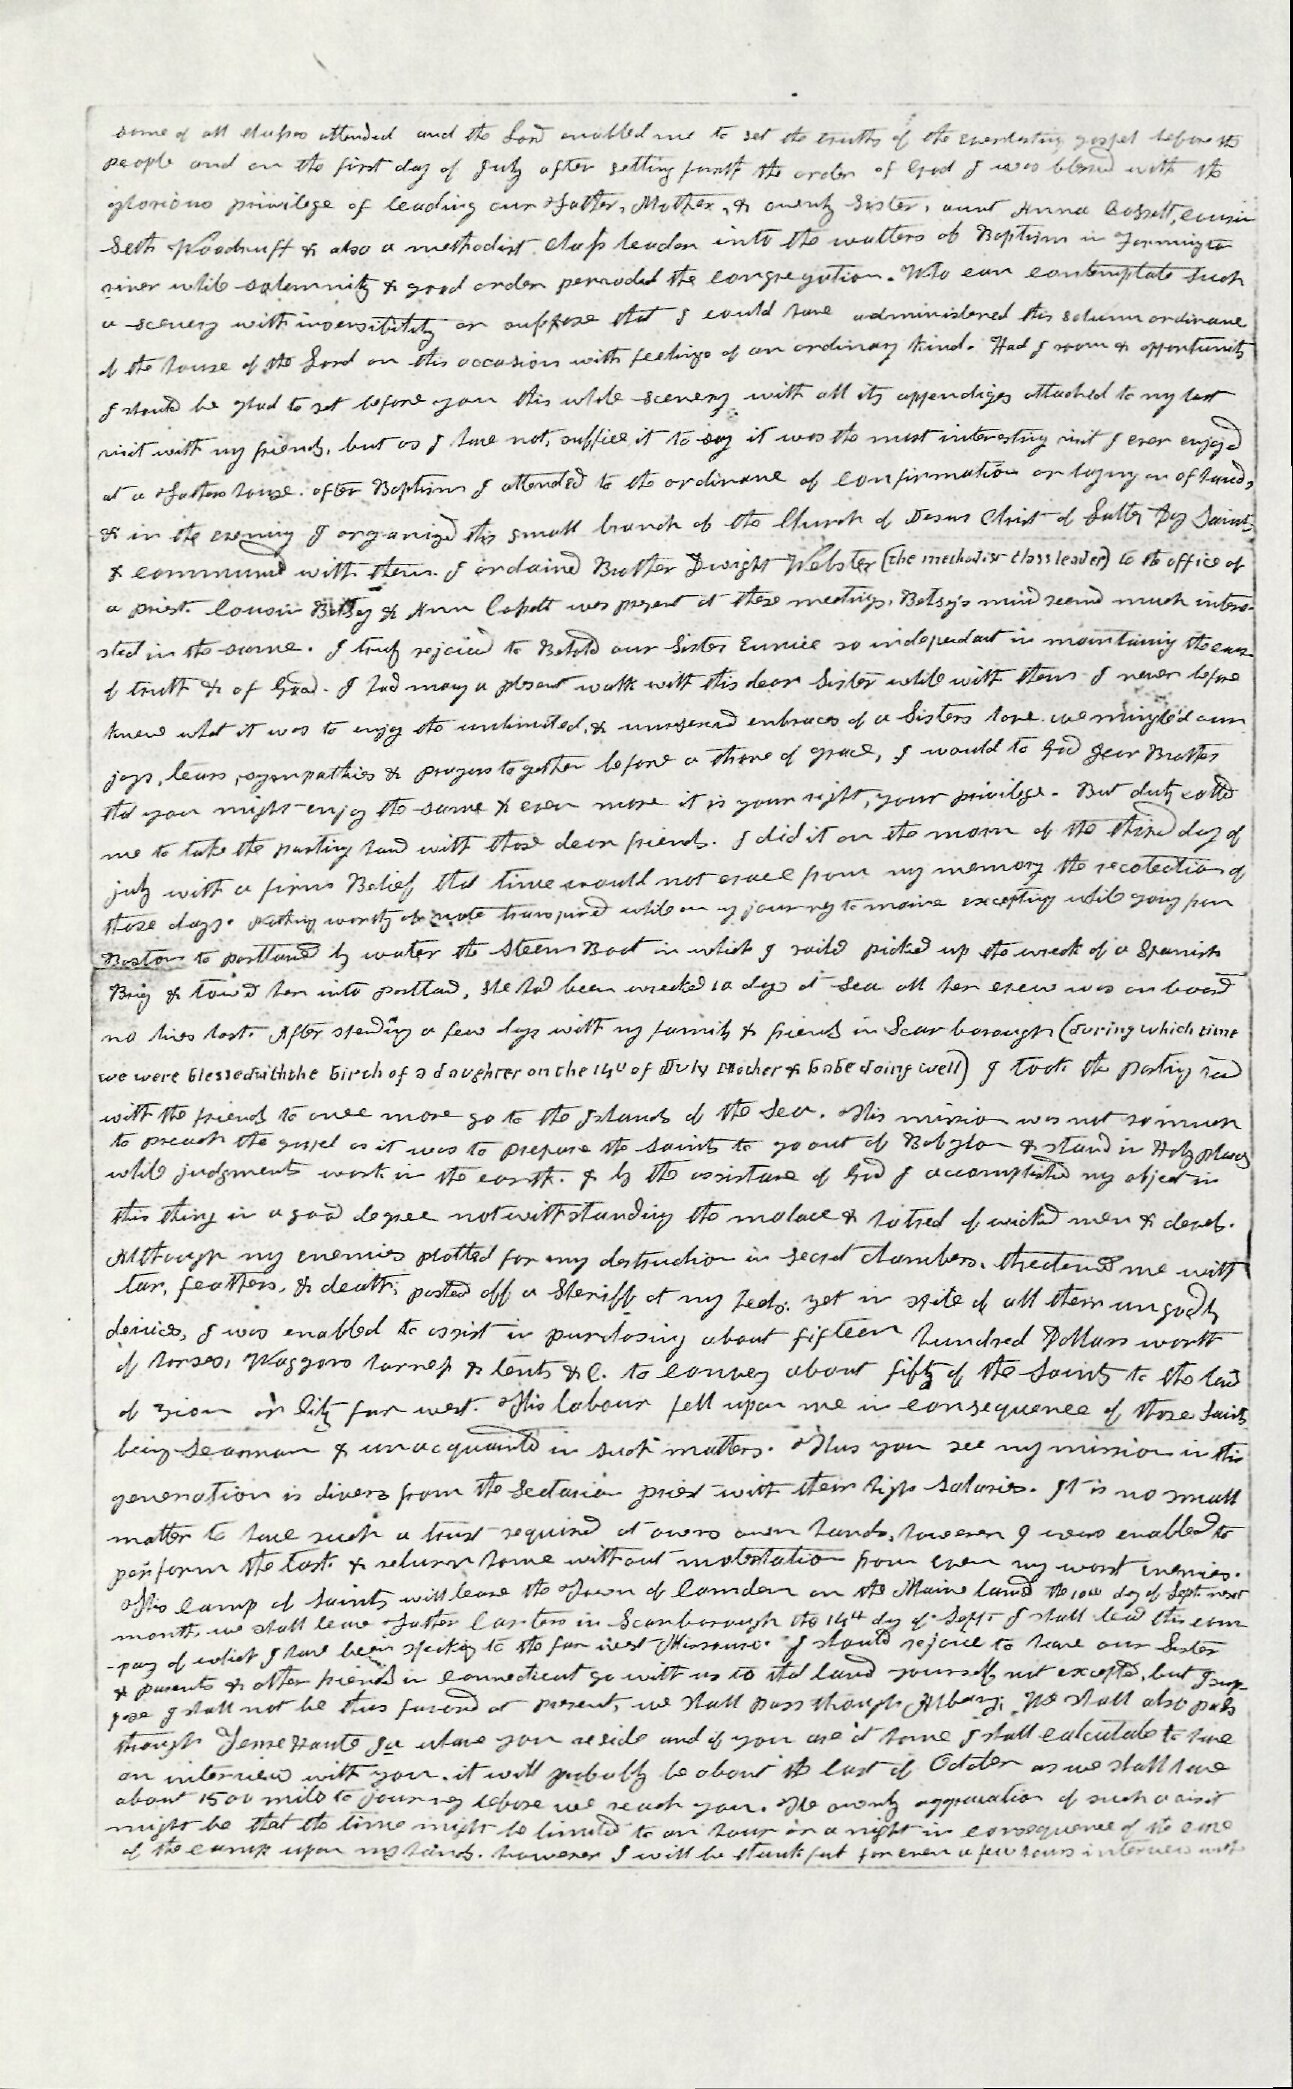 some of all classes attended and the Lord enabled me to set the truths of the everlasting gospel before the
people and on the first day of July after setting forth the order of God I was blessed with the
glorious privilege of leading our Father, Mother, & ownly Sister, aunt Anna Cossett, Cousin
Seth Woodruff & also a methodist Class leader into the watters of Baptism in Farmington
river while solemnity & good order pervaded the congregation. Who can contemplate such
a scenery with insensibility or suppose that I could have administered this solumn ordinance
of the house of the Lord on this occasion with feelings of an ordinary kind. Had I room & opportunity
I should be glad to set before you this whole scenery with all its appendiges attached to my last
visit with my friends, but as I have not, suffice it to say it was the most interesting visit I ever enjoyed
at a Fathers house. after Baptism I attended to the ordinance of confirmation or laying on of hands,
& in the evening I organized this small branch of the Church of Jesus Christ of Latter Day Saints
& communed with them. I ordained Brother Dwight Webster (the methodist class leader) to the office of
a priest. Cousin Betsey & Ann Cossett was present at these meetings, Betsey's mind seemed much intere-
sted in the same. I truly rejoiced to Behold our Sister Eunice so independant in maintaining the cause
of truth & of God. I had many a plesent walk with this dear Sister while with them I never before
knew what it was to enjoy the unlimited, & unreserved embraces of a Sisters love. we mingled our
joys, tears, sympathies & prayers together before a throne of grace, I would to God Dear Brother
that you might enjoy the same & even more it is your right, your privilege. But duty called
me to take the parting hand with those dear friends. I did it on the morn of the third day of
july with a firm Belief that time would not erace from my memory the recolection of
those days. Nothing worthy of note transpired while on my journey to maine excepting while going from
Boston to portland by water the Steem Boat in which I saild picked up the wreck of a Spanish
Brig & tow'd her into portland, she had been wrecked 10 days at sea all her crew was on board
no lives lost. After spending a few days with my family & friends in Scarborough (during which time
we were blessed with the birth of a daughter on the 14th of July Mother & babe doing well) I took the parting hand
with the friends to once more go to the Islands of the Sea. This mission was not so much
to preach the gospel as it was to prepare the saints to go out of Babylon & stand in Holy places
while judgments work in the earth. & by the assistance of God I accomplished my object in
this thing in a good degree notwithstanding the malace & hatred of wicked men & devels.
Although my enemies plotted for my destruction in secret chambers, threatened me with
tar, feathers, & death, posted off a Sheriff at my heels. yet in spite of all their ungodly
devices, I was enabled to assist in purchasing about fifteen hundred Dollars worth
of horses, Waggons harness & tents & C. to convey about fifty of the Saints to the land
of zion or City far west. This labour fell upon me in consequence of those Saints
being Seaman & unacquainted in such matters. Thus you see my mission in this
generation is divers from the Sectarian priest with their high salaries. It is no small
matter to have such a trust required at owers own hands, however I was enabled to
perform the task & return home without molestation from even my worst enemies.
This Camp of Saints will leave the Town of Camden on the Maine land the 10th day of Sept next
month. we shall leave Father Carters in Scarborough the 14th day of Sept I shall lead this com
-pany of which I have been speaking to the far west Missouri. I should rejoice to have our Sister
& parents & other friends in Connecticut go with us to that land yourself not excepted, but I sup-
pose I shall not be thus favored at present, we shall pass through Albany. We shall also pass
through Terre Haute Ia whare you reside and if you are at home I shall calculate to have
an interview with you. it will probably be about the last of October as we shall have
about 1500 miles to journey before we reach you. The ownly aggravation of such a visit
might be that the time might be limited to an hour or a night in consequence of the care
of the camp upon my hands. however I will be thankful for even a few hours interview with